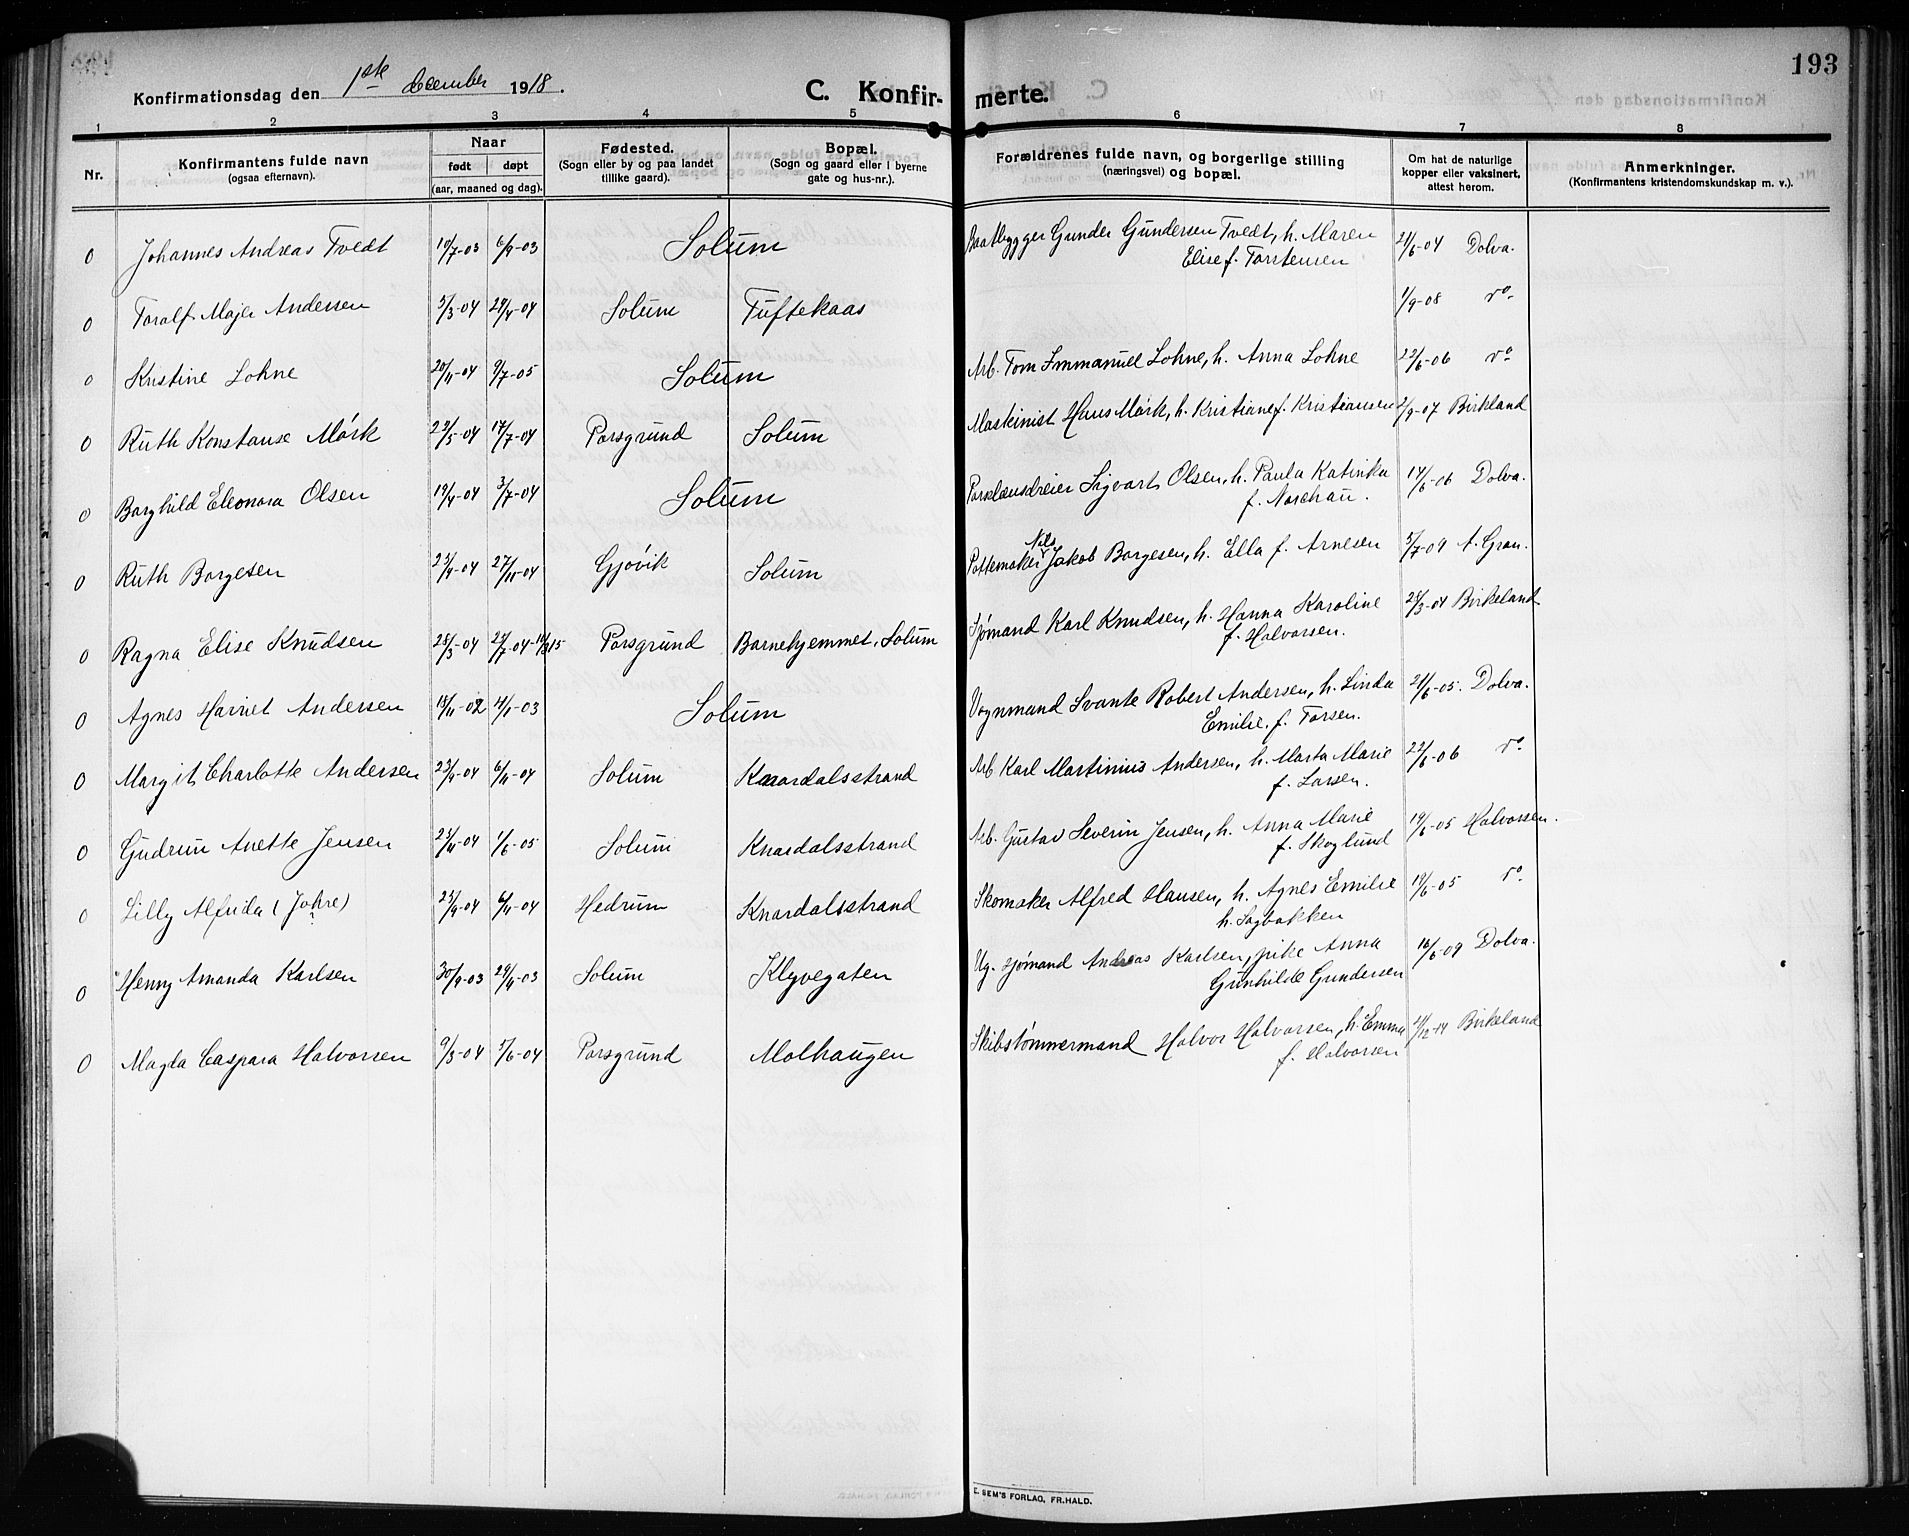 193
Konfirmationsdag den 1ste december 1918.
C. Konfir- merte.
1 2 3 4 5 6 7 8
Nr.
Konfirmantens fulde navn
(ogsaa efternavn).
Naar
født døpt
(aar, maaned og dag).
Fødested.
(Sogn eller by og paa landet
tillike gaard).
Bopæl.
(Sogn og gaard eller i byerne
gate og hus-nr.).
Forældrenes fulde navn, og borgerlige stilling
(næringsvei) og bopæl.
Om hat de naturlige
kopper eller vaksinert,
attest herom.
Anmerkninger.
(Konfirmantens kristendomskundskap m. v.).
0 Johannes Andreas Tvedt 10/7-03 6/9-03 Solum Baatbygger Gunder Gundersen Tvedt, h. Maren 21/6-04 Dolva.
Elise f. Torstensen
0 Toralf Majer Andersen 5/3-04 24/4-04 Solum Tuftekaas 1/9-08 do
0 Kristine Lohne 20/11-04 9/7-05 Solum Arb. Tom Immanuel Lohne, h. Anna Lohne 22/6-06 do
0 Ruth Konstanse Mørk 22/5-04 17/7-04 Porsgrund Solum Maskinist Hans Mørk, h. Kristiane f. Kristiansen 2/9-07 Birkland
0 Borghild Eleonora Olsen 19/4-04 3/7-04 Solum Porselænsdreier Sigvart Olsen, h. Paula Katinka 14/6-06 Dolva.
f. Narehau.
0 Ruth Borgesen 23/9-04 27/11-04 Gjøvik Solum Pottemaker Nils Jakob Borgesen, h. Ella f. Arnesen 5/7-09 A. Gran.
0 Ragna Elise Knudsen 28/3-04 24/7-04 Porsgrund Barnehjemmet, Solum Sjømand Karl Knudsen, h. Hanna Karoline Birkeland
f. Halvorsen.
0 Agnes Harriet Andersen 18/11-02 4/1-03 Solum Vognmand Svante Robert Andersen, h. Linda 21/6-05. Dolva.
Emilie. f. Torsen.
0 Margit Charlotte Andersen 23/9-04 6/11-04 Solum Knardalsstrand Arb. Karl Martinius Andersen, h. Marta Marie 22/6-06 do
f. Larsen.
0 Gudrun Anette Jensen 23/11-04 1/6-05 Solum Knardalsstrand Arb. Gustav Severin Jensen, h. Anna Marie 19/6-05 Halvorsen.
f. Skoglund
0 Lilly Alfrida (Johre) 23/9-04 6/11-04 Hedrum Knardalsstrand Skomaker Alfred Hansen, h. Agnes Emilie 19/6-05 do
h. Sagbakken
0 Henny Amanda Karlsen 30/9-03 29/11-03 Solum Klyvegaten Ug. sjømand Andreas Karlsen, pike Anna 16/6-09 Dolva.
Gunhilde Gundersen
0 Magda Caspara Halvorsen 9/3-04 5/6-04 Porsgrund Molhaugen Skibstømmermand Halvor Halvorsen, h. Emma 11/12-14 Birkeland
f. Halvorsen
E. SEM'S FORLAG, FR.HALD.